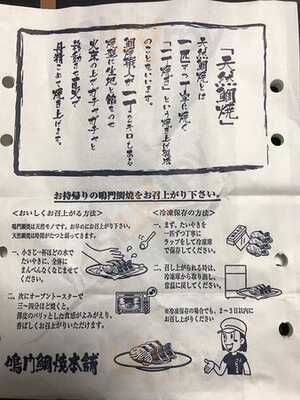 「天然鯛焼」
天然鯛焼とは
一匹ずつ丁寧に焼く
「一丁焼き」という焼き上げ製法
のことをいいます。
鯛焼職人が一丁のキロもある
焼型に生地と餡をのせ
火床の上でガチャガチャと
移動させて直火で
丹精こめて焼き上げます。
お持帰りの鳴門鯛焼をお召上がり下さい。
＜おいしくお召上がる方法＞
鳴門鯛焼は天然モノです。お早めにお召上がり下さい。
天然鯛焼は時間がたつと弱ってきます。
一、小さじ一杯ほどの水で
たいやきに、全体に
まんべんなくなじませて
ください。
二、次にオーブントースターで
三〜四分ほど焼くと、
薄皮のパリッとした食感がよみがえり、
香ばしくお召上がりいただけます。
＜冷凍保存の方法＞
一、まず、たいやきを
一匹ずつ丁寧に
ラップをして冷凍庫
で保存してください。
二、召し上がられる時は、
冷凍庫から取り出し、
常温に戻してください。
※冷凍保存の場合でも、2〜3日以内に
お召し上がりください
鳴門鯛焼本舗